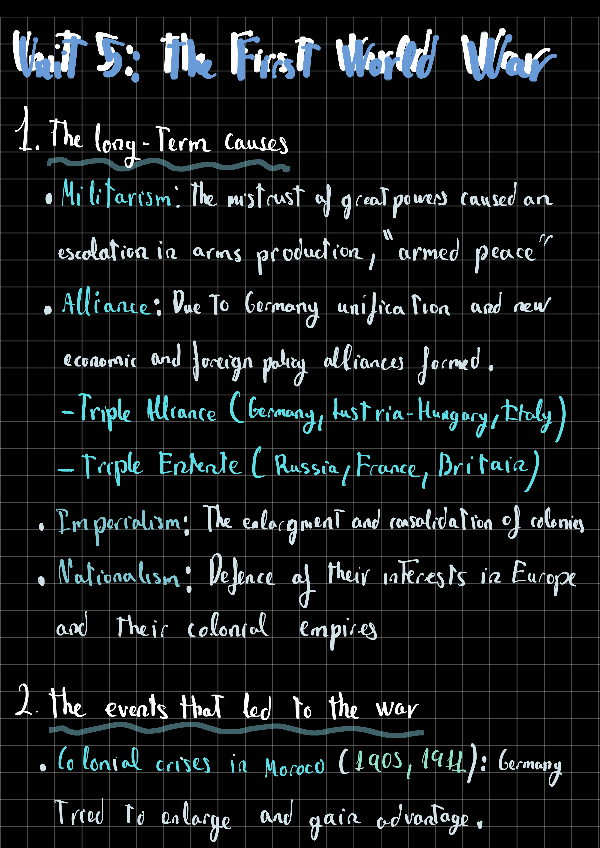 Unit 5: The First World War
1. The long-Term causes
• Militarism: The mistrust of great powers caused an
escalation in arms production, "armed peace"
• Alliance: Due To Germany unification and new
economic and foreign policy alliances formed.
- Triple Alliance (Germany, Austria-Hungary, Italy)
- Triple Entente (Russia, France, Britain)
• Imperialism: The enlargment and consolidation of colonies
• Nationalism: Defence of their interests in Europe
and their colonial empires
2. The events that led to the war
• Colonial crises in Moroco (1905, 1911): Germany
Tried to enlarge and gain advantage.